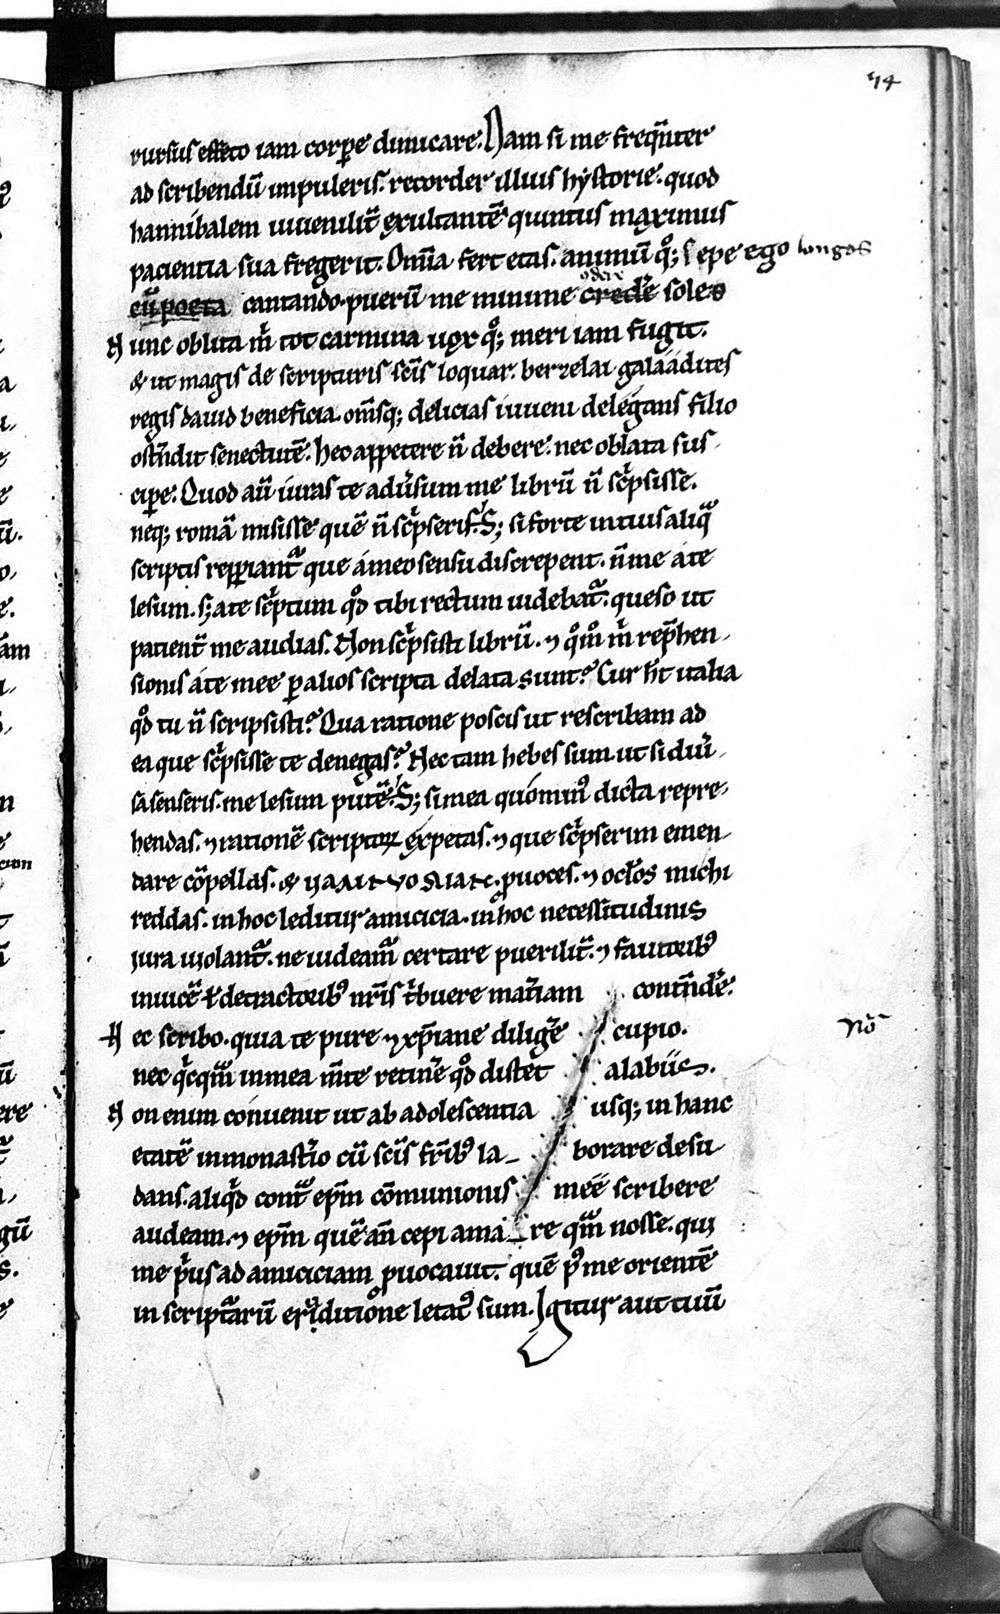 74
rursus effeto iam corꝑe dimicare. Nam si me freq̄nter
ad scribendū impuleris. recorder illius hystorie. quod
hannibalem iuuenilit̄ exultantē quintus maximus
pacientia sua fregerit. Omīa fert etas. animū qͦ; sepe ego longos
cū poeta cantando puerū me minime credͤe soles
odere
Nunc oblita m̄ tot carmina uox qͦ; meri iam fugit.
& ut magis de scripturis sc̄is loquar. berzelai galaadites
regis dauid beneficia. om̄sq; delicias iuueni delegans filio
ostn̄dit senectutē. hec appetere n̄ debere. nec oblata sus-
cipe. Quod aū iuras te adu̓sum me librū n̄ sc̓psisse.
neq; romā misisse quē n̄ sc̓pseris. S; si forte in tuis aliq̄
scriptis reꝑiant̄ que a meo sensu discrepent. n̄ me a te
lesum. s; a te sc̓ptum qͦd tibi rectum uidebat̄. queso ut
patient̄ me audias. Non sc̓psisti librū. ⁊ qͦmͦ m̓ rep̄hen-
sionis a te mee ꝑ alios scripta delata sunt? Cur h̄t italia
qͦd tu n̄ scripsisti? Qua ratione poscis ut rescribam ad
ea que sc̓psisse te denegas? Nec tam hebes sum. ut si diu̓-
sa senseris. me lesum putē. S; si mea quominꝰ dicta repre-
hendas. ⁊ rationē scriptoꝝ expetas. ⁊ que sc̓pserim emen-
dare cōpellas. & ꝓuoces. ⁊ oclōs michi
reddas. in hoc leditur amicicia. in hoc necessitudinis
iura uiolant̄. ne uideam̄ certare puerilit̄. ⁊ fautoribꝰ
inuicē ł detractoribꝰ nr̄is t̓buere mat̄iam contn̄dͤe.
Hec scribo. quia te pure ⁊ xp̄iane diligͤe cupio.
nec qͥcqͣm in mea m̄te retinͤe qͦd distet a labiis.
Non enim conuenit ut ab adolescentia usq; in hanc
etatē in monast̓io cū sc̄is fr̄ibꝰ laborare desu-
dans. aliqͥd contͣ ep̄m cōmunionis meę scribere
audeam. ⁊ ep̄m quē an̄ cepi amare qͣm nosse. qui
me p̓us ad amiciciam ꝓuocauit. quē pꝰ me orientē
in scriptarū eruditione letatꝰ sum. Igitur aut tuū
Nō